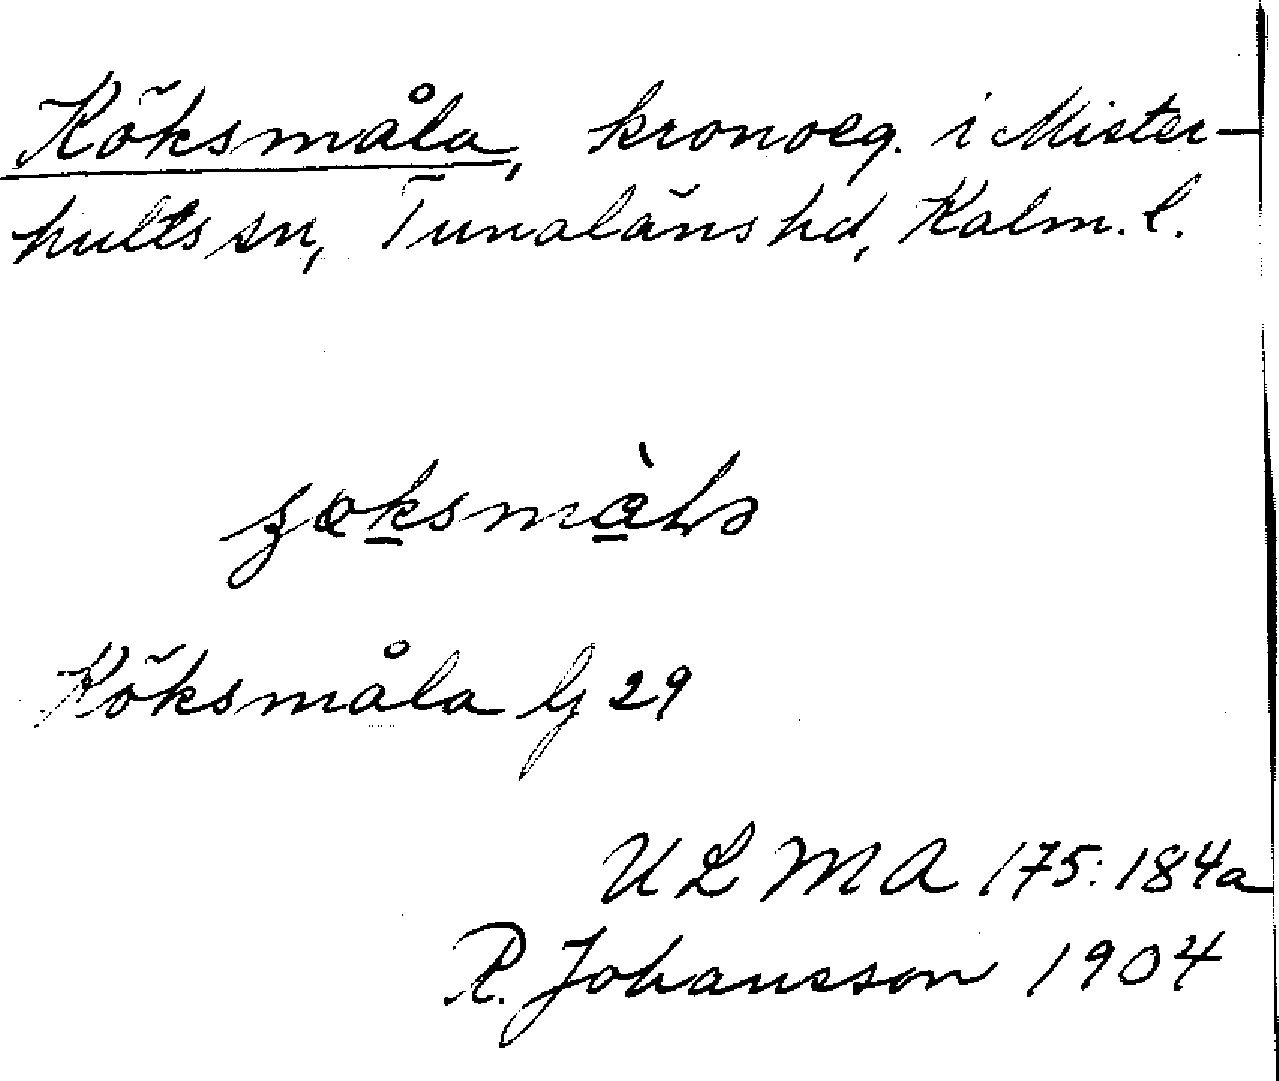 Köksmåla, kronoeg. i Mister-
hults sn, Tunaläns hd, Kalm. l.
Köksmåla Gj 29
ULMA 175:184a
R. Johansson 1904